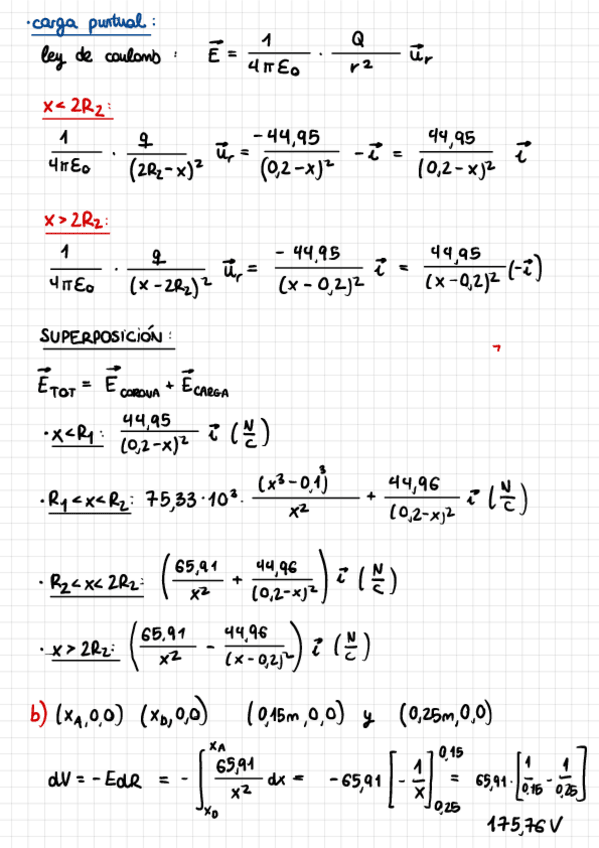 · carga puntual :
ley de coulomb : E⃗ = 1/(4πε₀) · Q/r² u⃗ᵣ
x < 2R₂:
1/(4πε₀) · q/(2R₂-x)² u⃗ᵣ = -44,95/(0,2-x)² -i⃗ = 44,95/(0,2-x)² i⃗
x > 2R₂:
1/(4πε₀) · q/(x-2R₂)² u⃗ᵣ = -44,95/(x-0,2)² i⃗ = 44,95/(x-0,2)² (-i⃗)
SUPERPOSICIÓN :
E⃗ TOT = E⃗ CORONA + E⃗ CARGA
· x<R₁: 44,95/(0,2-x)² i⃗ (N/C)
· R₁<x<R₂: 75,33·10³ · (x³-0,1)³/x² + 44,96/(0,2-x)² i⃗ (N/C)
· R₂<x<2R₂: (65,91/x² + 44,96/(0,2-x)²) i⃗ (N/C)
· x>2R₂: (65,91/x² - 44,96/(x-0,2)²) i⃗ (N/C)
b) (x_A,0,0) (x_D,0,0) (0,15m,0,0) y (0,25m,0,0)
dV = -EdR = -∫_{x_D}^{x_A} 65,91/x² dx = -65,91 [-1/x]_{0,25}^{0,15} = 65,91·[1/0,15 - 1/0,25]
175,76 V